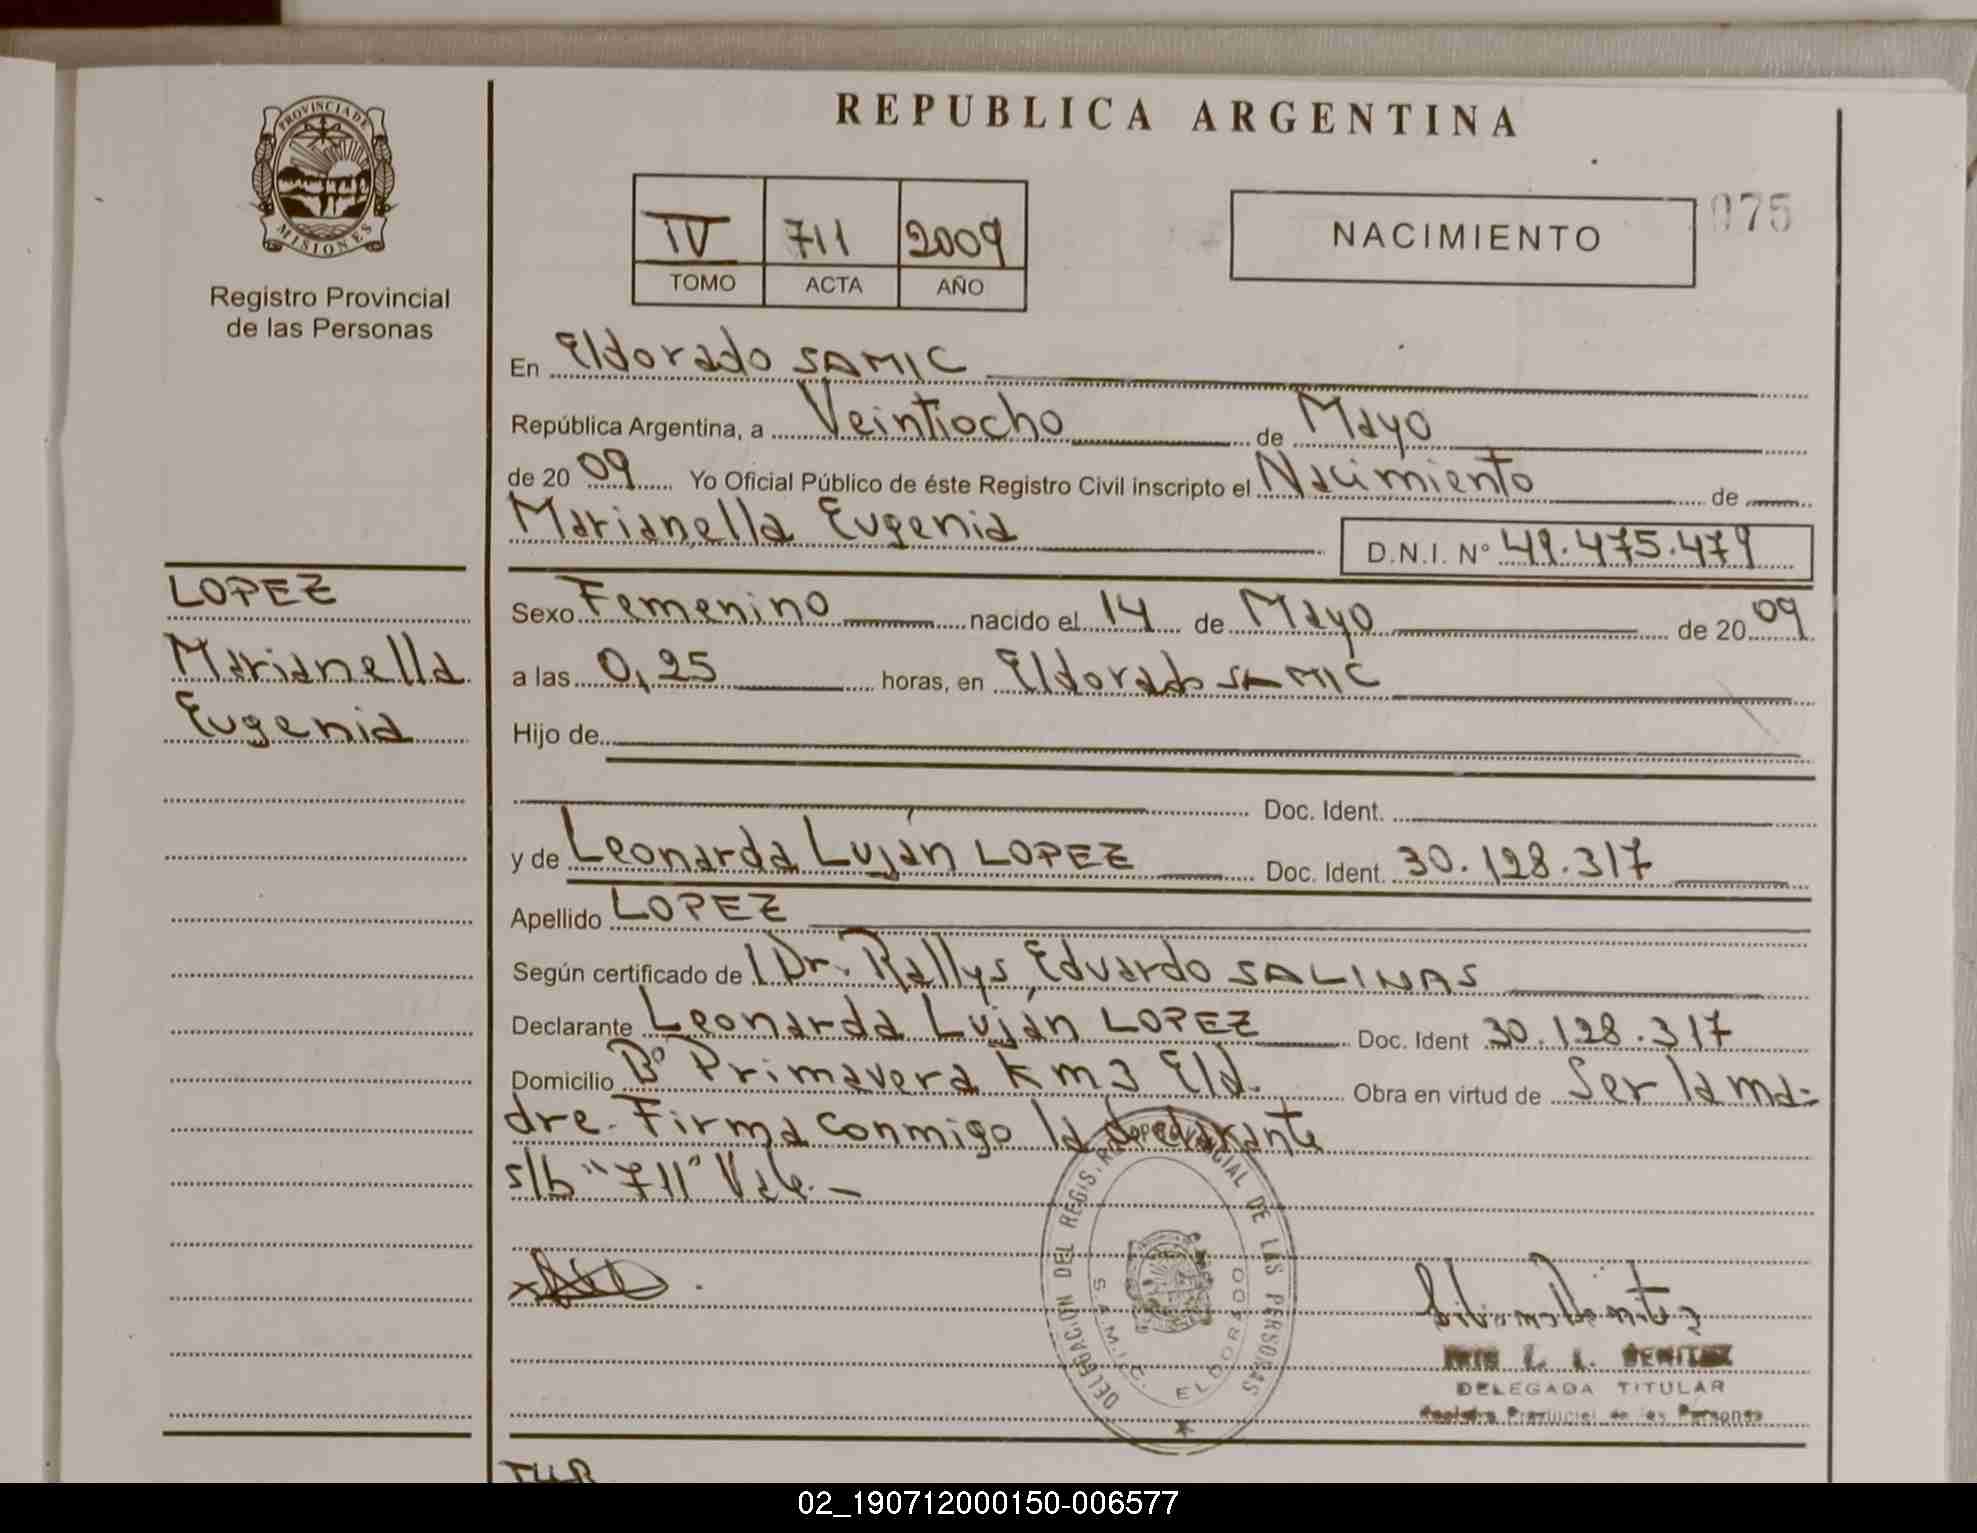 REPUBLICA ARGENTINA
PROVINCIA DE
MISIONES
Registro Provincial
de las Personas
IV 711 2009
TOMO ACTA AÑO
NACIMIENTO
075
En Eldorado SAMIC
República Argentina, a Veintiocho de Mayo
de 2009 Yo Oficial Público de éste Registro Civil inscripto el Nacimiento de
Marianella Eugenia D.N.I. Nº 49.475.479
LOPEZ
Marianella
Eugenia
Sexo Femenino nacido el 14 de Mayo de 2009
a las 0,25 horas, en Eldorado SAMIC
Hijo de
Doc. Ident.
y de Leonarda Luján LOPEZ Doc. Ident. 30.128.317
Apellido LOPEZ
Según certificado de Dr. Rallys Eduardo SALINAS
Declarante Leonarda Luján LOPEZ Doc. Ident 30.128.317
Domicilio Bº Primavera Km 3 Eld. Obra en virtud de Ser la ma=
dre. Firma conmigo la declarante
s/b "711" Vale.-
DELEGACION DEL REGIS. PROVINCIAL DE LAS PERSONAS
S.A.M.I.C. ELDORADO
L. I. BENITEZ
DELEGADA TITULAR
Registro Provincial de las Personas
02_190712000150-006577